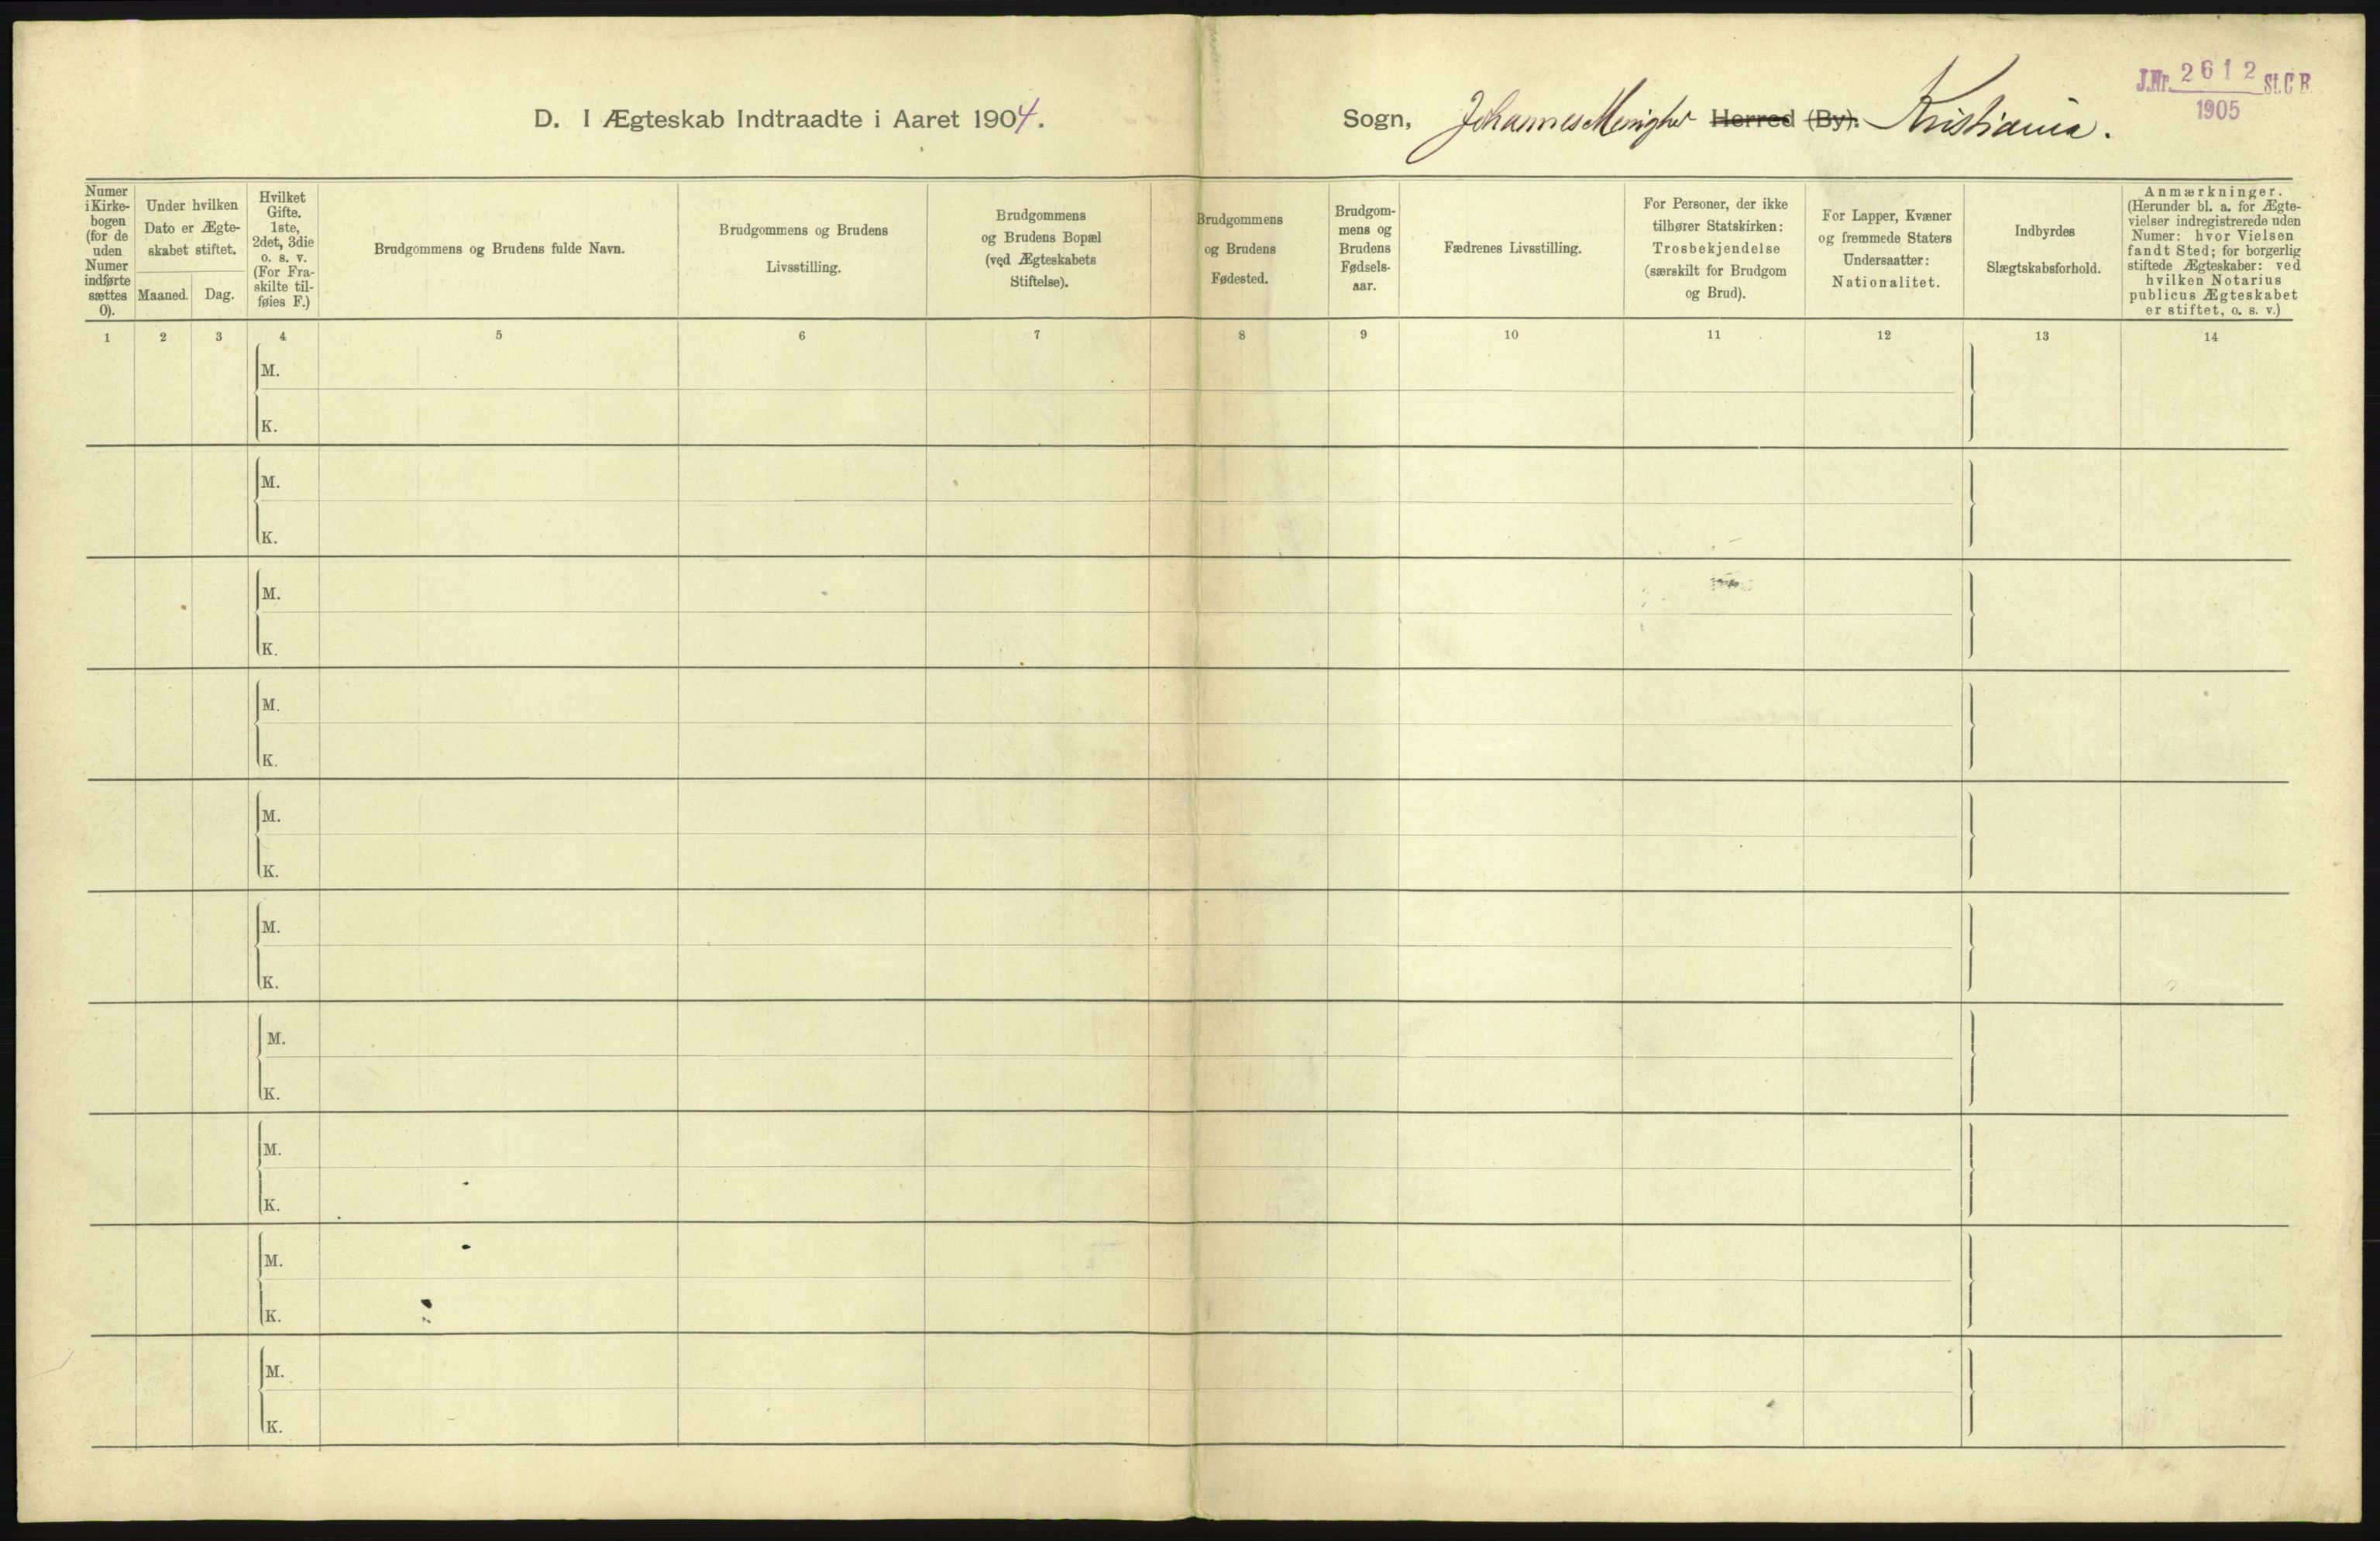 D. I Ægteskab Indtraadte i Aaret 1904.
Sogn, Johannes Menighet Herred (By). Kristiania.
J.Nr. 2612 St.C.B.
1905
Numer
i Kirke-
bogen
(for de
uden
Numer
indførte
sættes
0).
Under hvilken
Dato er Ægte-
skabet stiftet.
Maaned.
Dag.
Hvilket
Gifte.
1ste,
2det, 3die
o. s. v.
(For Fra-
skilte til-
føies F.)
Brudgommens og Brudens fulde Navn.
Brudgommens og Brudens
Livsstilling.
Brudgommens
og Brudens Bopæl
(ved Ægteskabets
Stiftelse).
Brudgommens
og Brudens
Fødested.
Brudgom-
mens og
Brudens
Fødsels-
aar.
Fædrenes Livsstilling.
For Personer, der ikke
tilhører Statskirken:
Trosbekjendelse
(særskilt for Brudgom
og Brud).
For Lapper, Kvæner
og fremmede Staters
Undersaatter:
Nationalitet.
Indbyrdes
Slægtskabsforhold.
Anmærkninger.
(Herunder bl. a. for Ægte-
vielser indregistrerede uden
Numer: hvor Vielsen
fandt Sted; for borgerlig
stiftede Ægteskaber: ved
hvilken Notarius
publicus Ægteskabet
er stiftet, o. s. v.)
1 2 3 4 5 6 7 8 9 10 11 12 13 14
M.
K.
M.
K.
M.
K.
M.
K.
M.
K.
M.
K.
M.
K.
M.
K.
M.
K.
M.
K.